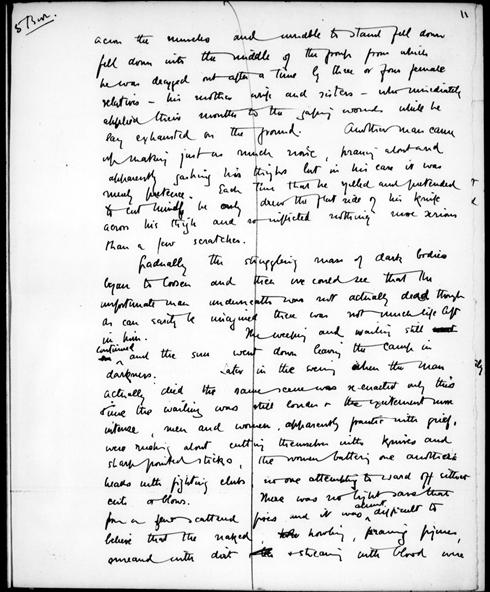 5 Bur.
11
across the muscles and unable to stand fell down
fell down into the middle of the group from which
he was dragged out after a time by three or four female
relatives – his mother wife and sisters – who immediately
applied their mouths to the gaping wounds while he
lay exhausted on the ground. Another man came
up making just as much noise, prancing about and
apparently gashing his thighs but in his case it was
merely pretence. Each time that he yelled and pretended
to cut himself he only drew the flat side of his knife
across his thigh and so inflicted nothing more serious
than a few scratches.
Gradually the struggling mass of dark bodies
began to loosen and then we could see that the
unfortunate man underneath was not actually dead though
as can easily be imagined there was not much life left
in him. The weeping and wailing still
continued and the sun went down leaving the camp in
darkness. Later in the evening when the man
actually died the same scene was re-enacted only this
time the wailing was still louder & the excitement more
intense, men and women, apparently frantic with grief,
were rushing about cutting themselves with knives and
sharp pointed sticks, the women battering one another's
heads with fighting clubs no one attempting to ward off either
cuts or blows. There was no light save that
from a few scattered fires and it was almost difficult to
believe that the naked, howling, prancing figures,
smeared with dirt & streaming with blood were